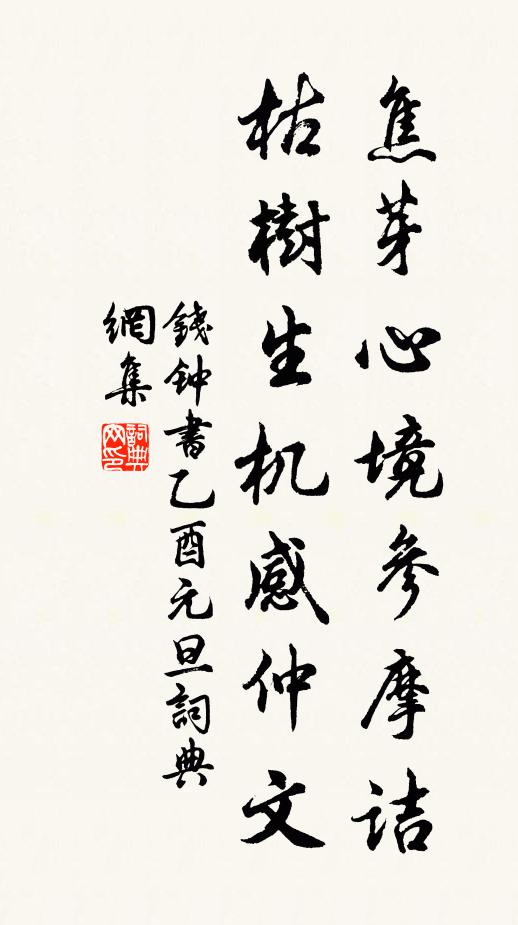 焦芽心境參摩詰
枯樹生机感仲文
錢钟書乙酉元旦詞典
網集
詞典
网印